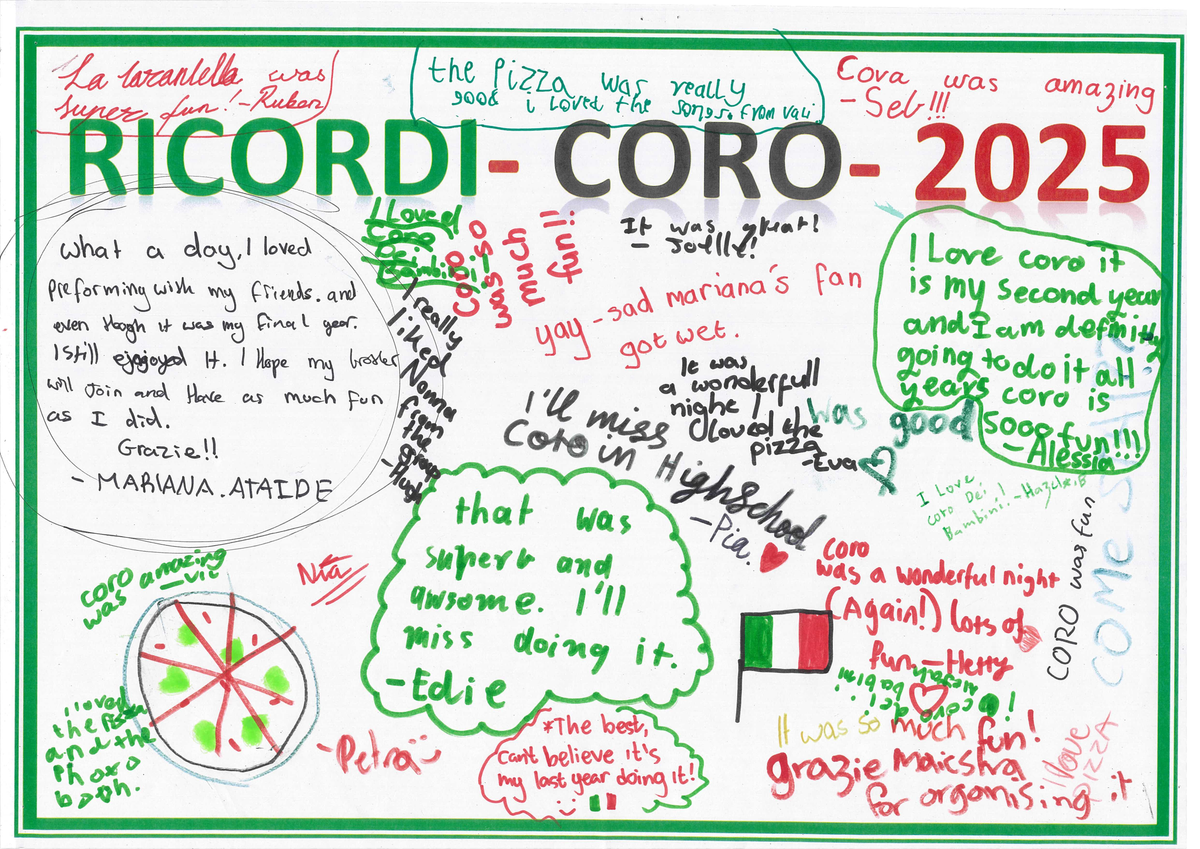 La tarantella was
super fun! -Ruben
the Pizza was really
good i loved the songs. from Vali
Cora was amazing
- Seb!!!
RICORDI- CORO- 2025
what a day, I loved
preforming with my friends. and
even though it was my final year.
I still enjoyed it. I Hope my brother
will Join and Have as much fun
as I did.
Grazie!!
- MARIANA. ATAIDE
I Loved
Coro
Dei
Bambini!
coro
was so
much
fun!!
It was great!
- Joelle!
I Love coro it
is my second year
and I am definitly
going to do it all
years coro is
sooo fun!!!
- Alessia
yay - sad mariana's fan
got wet.
I really
liked
Nonna
from
the
group
- Hugh
It was
a wonderfull
night!
I loved the
pizza
-Eva
was good
I'll miss
Coro in Highschool
-Pia.
I Love
coro Dei
Bambini! - Hazel.B
that was
superb and
awsome. I'll
miss doing it.
- Edie
coro amazing
was - Vic
Nia
coro
was a wonderful night
(Again!) lots of
fun, - Hetty
CORO was fun
COME
I loved
the pissa
and the
Photo
booth.
- Petra
*The best,
Can't believe it's
my last year doing it!
coro dei
It was so much fun!
grazie Maicstra
for organising it
I love
PIZZA